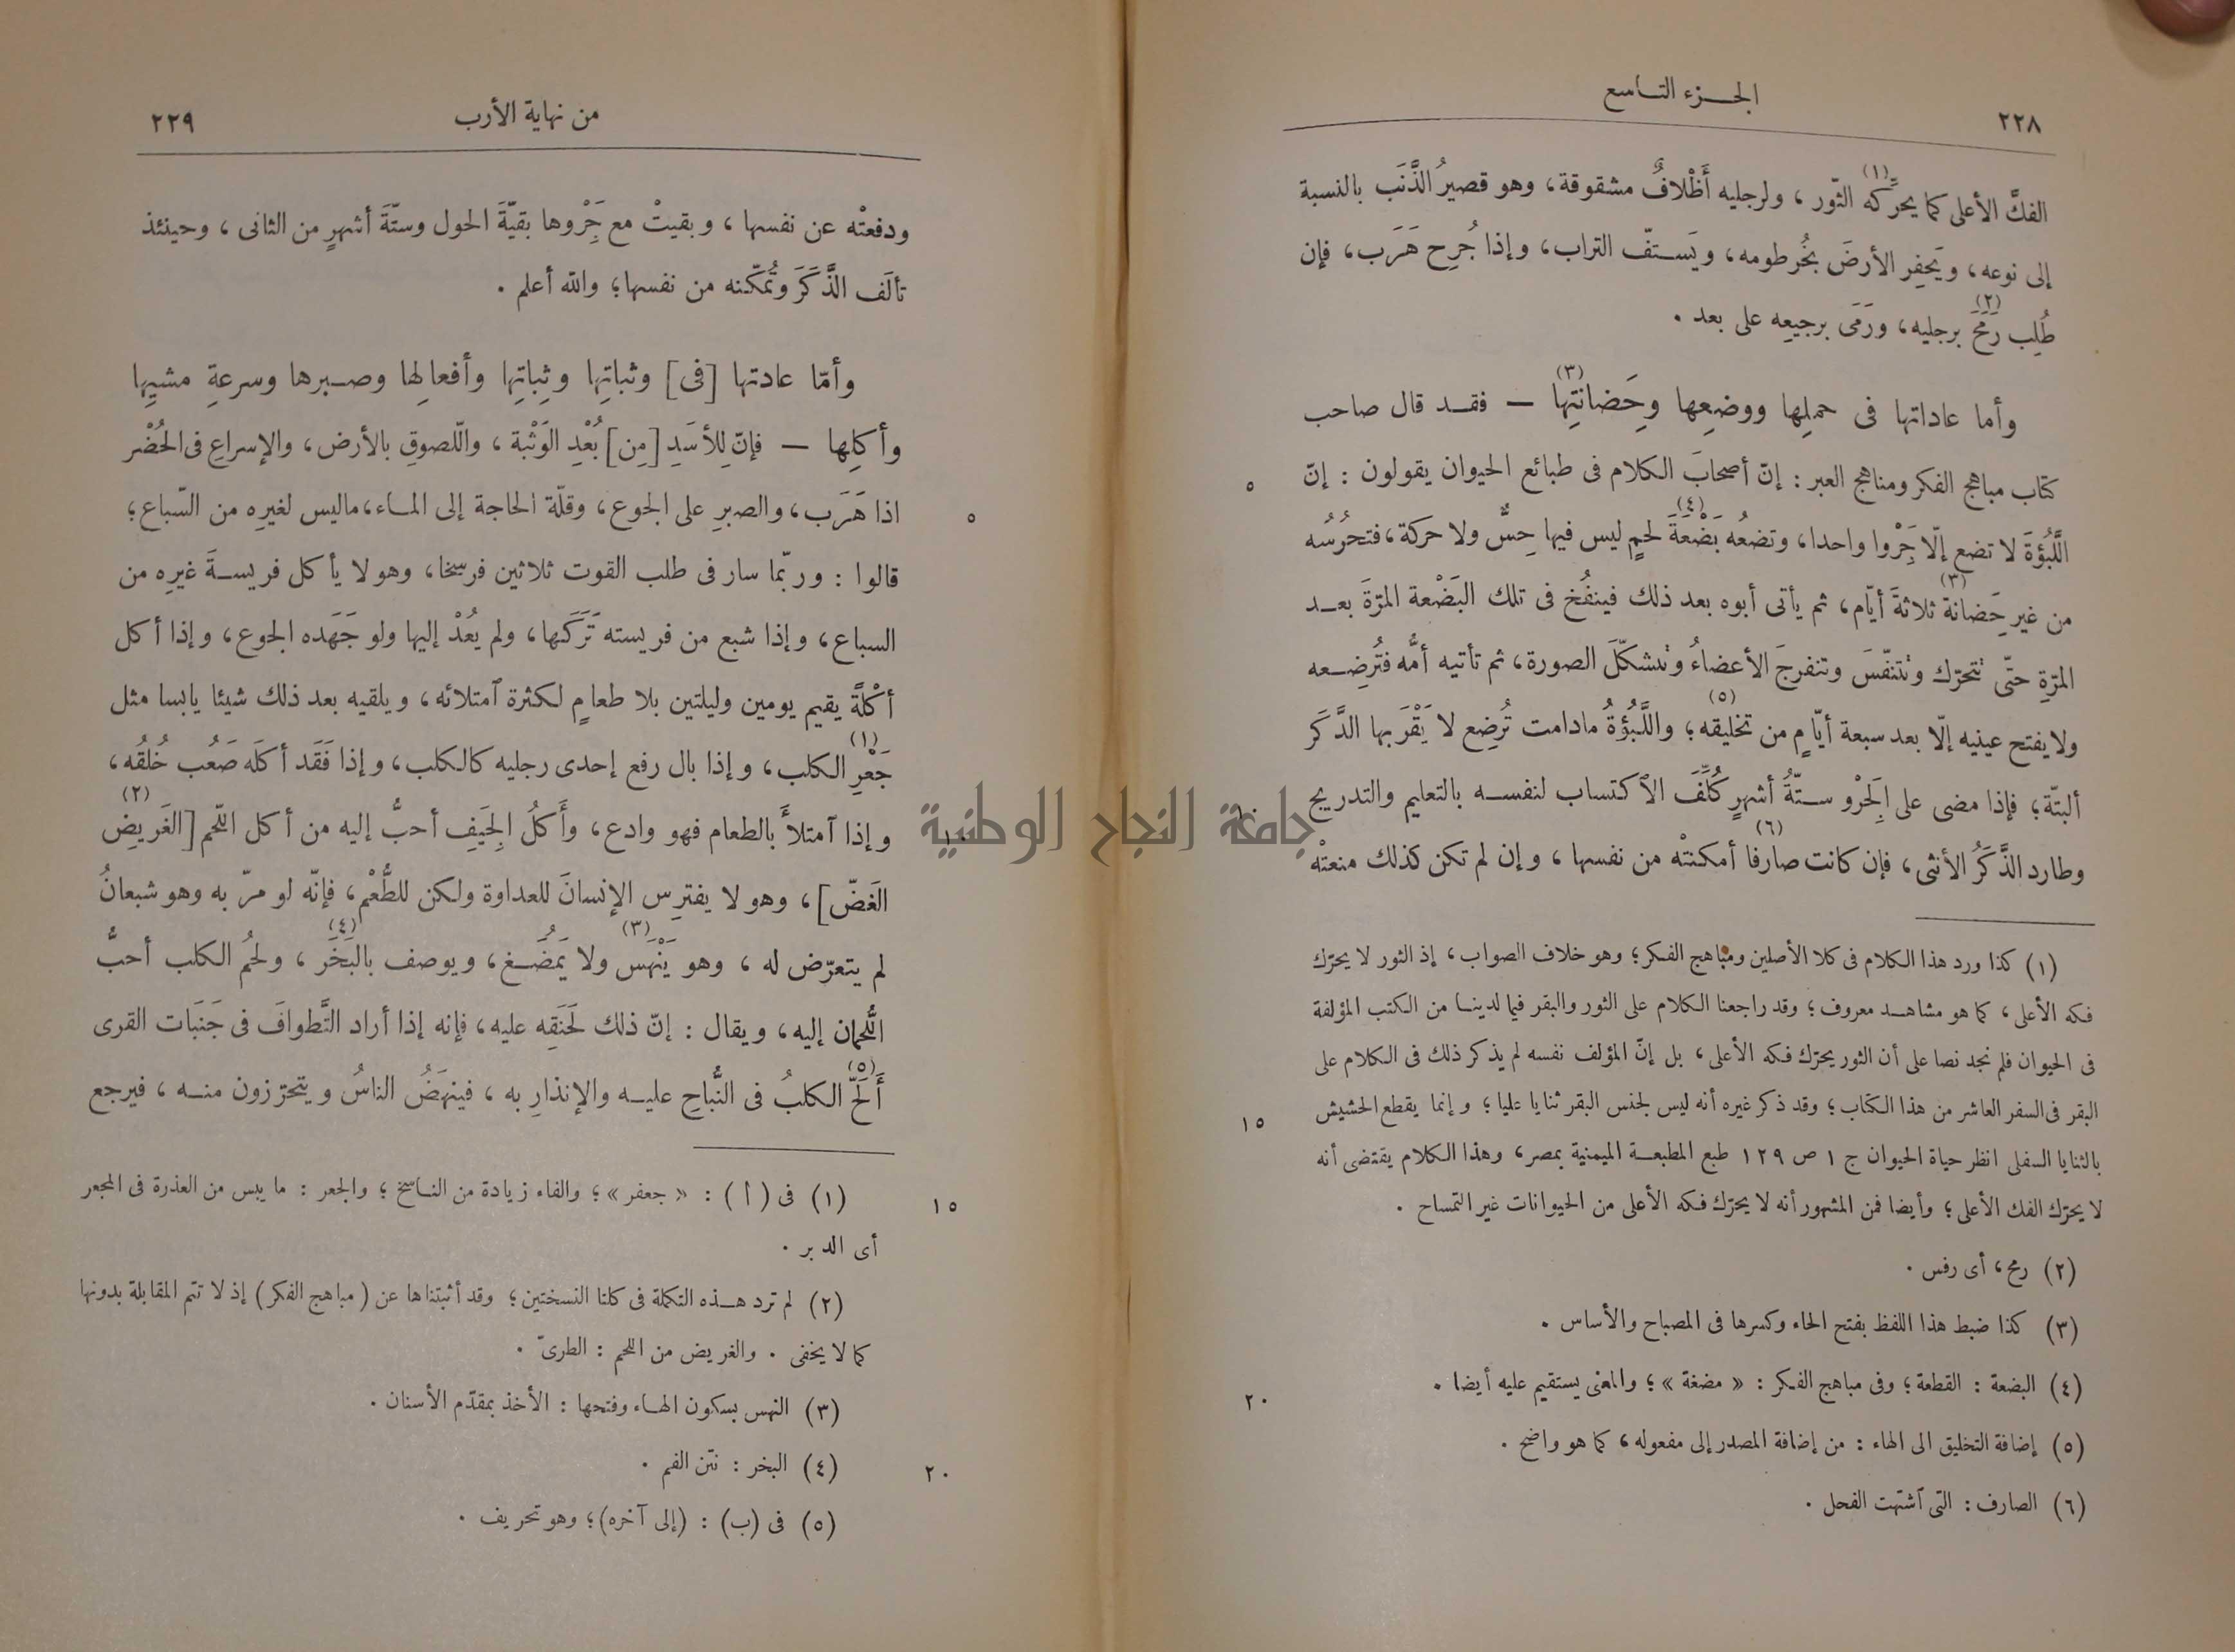 ٢٢٨
الجـــزء التـاسع
الفكَّ الأعلى كما يحرِّكه (١) الثّور ، ولرجليه أَظْلافٌ مشقوقة، وهو قصيرُ الذَّنَب بالنسبة
إلى نوعه، ويَحفِر الأرضَ بخُرطومه، ويَستفّ التراب، وإذا جُرِح هَرَب، فإن
طُلِب رَمَحَ (٢) برجليه، ورَمَى برجيعِه على بعد .
وأما عاداتها فى حملِها ووضعِها وحَِضانتِها (٣) — فقد قال صاحب
كتاب مباهج الفكر ومناهج العبر : إنّ أصحابَ الكلام فى طبائع الحيوان يقولون : إنّ
٥
اللَّبُؤةَ لا تضع إلّا جَِرْوا واحدا، وتضعُه بَضْعَةَ (٤) لحمٍ ليس فيها حِسٌّ ولا حركة، فتحرُسُه
من غير حَِضانة (٣) ثلاثةَ أيّام، ثم يأتى أبوه بعد ذلك فينفُخ فى تلك البَضْعة المرّةَ بعد
المرّةِ حتّى تتحرّك وتتنفّسَ وتنفرجَ الأعضاءُ وتتشكّلَ الصورة، ثم تأتيه أمُّه فتُرضِعه
ولا يفتح عينيه إلّا بعد سبعة أيّامٍ من تخليقه (٥)؛ واللَّبُؤةُ مادامت تُرضِع لا يَقْرَبها الذَّكَر
ألبتّة؛ فإذا مضى على الجَِرْو ستّةُ أشهرٍ كُلِّفَ الاكتساب لنفسه بالتعليم والتدريج
وطارد الذَّكَرُ الأنثى، فإن كانت صارفا (٦) أمكنتْه من نفسها ، وإن لم تكن كذلك منعتْه
(١) كذا ورد هذا الكلام فى كلا الأصلين ومباهج الفكر؛ وهو خلاف الصواب، إذ الثور لا يحرّك
فكه الأعلى، كما هو مشاهد معروف؛ وقد راجعنا الكلام على الثور والبقر فيما لدينا من الكتب المؤلفة
فى الحيوان فلم نجد نصا على أن الثور يحرّك فكه الأعلى، بل إنّ المؤلف نفسه لم يذكر ذلك فى الكلام على
البقر فى السفر العاشر من هذا الكتاب؛ وقد ذكر غيره أنه ليس لجنس البقر ثنايا عليا؛ وإنما يقطع الحشيش
١٥
بالثنايا السفلى انظر حياة الحيوان ج ١ ص ١٢٩ طبع المطبعة الميمنية بمصر، وهذا الكلام يقتضى أنه
لا يحرّك الفك الأعلى؛ وأيضا فمن المشهور أنه لا يحرّك فكه الأعلى من الحيوانات غير التمساح .
(٢) رمح، أى رفس .
(٣) كذا ضبط هذا اللفظ بفتح الحاء وكسرها فى المصباح والأساس .
(٤) البضعة : القطعة؛ وفى مباهج الفكر : « مضغة »؛ والمعنى يستقيم عليه أيضا .
٢٠
(٥) إضافة التخليق الى الهاء : من إضافة المصدر إلى مفعوله، كما هو واضح .
(٦) الصارف : التى اشتهت الفحل .
من نهاية الأرب
٢٢٩
ودفعتْه عن نفسها ، وبقيتْ مع جَِرْوها بقيّةَ الحول وستّةَ أشهرٍ من الثانى ، وحينئذ
تألَف الذَّكَرَ وتُمكّنه من نفسها؛ والله أعلم .
وأمّا عادتها [فى] وثباتِها وثِباتِها وأفعالِها وصبرها وسرعةِ مشيِها
وأكلِها — فإنّ لِلأسَدِ [مِن] بُعْدِ الوَثْبة ، واللّصوقِ بالأرض، والإسراعِ فى الحُضْر
اذا هَرَب، والصبرِ على الجوع، وقلّة الحاجة إلى الماء، ماليس لغيرِه من السّباع؛
٥
قالوا : وربّما سار فى طلب القوت ثلاثين فرسخا، وهو لا يأكل فريسةَ غيرِه من
السباع، وإذا شبع من فريسته تَرَكَها، ولم يعُدْ إليها ولو جَهَده الجوع، وإذا أكل
أكْلةً يقيم يومين وليلتين بلا طعامٍ لكثرة آمتلائه، ويلقيه بعد ذلك شيئا يابسا مثل
جَعْرِ (١) الكلب، وإذا بال رفع إحدى رجليه كالكلب، وإذا فَقَد أكلَه صَعُب خُلقُه،
وإذا آمتلأَ بالطعام فهو وادع، وأَكلُ الجِيَفِ أحبُّ إليه من أكل اللّحم [الغَريضِ (٢)
١٠
الغَضّ]، وهو لا يفترِس الإنسانَ للعداوة ولكن للطُّعْم، فإنّه لو مرّ به وهو شبعانُ
لم يتعرّض له ، وهو يَنْهَس (٣) ولا يَمضَُغ، ويوصف بالبَخَر (٤) ، ولحمُ الكلب أحبُّ
اللُّحمان إليه، ويقال : إنّ ذلك لحَنَقِه عليه، فإنه إذا أراد التَّطوافَ فى جَنَبات القرى
أَلَحَّ (٥) الكلبُ فى النُّباحِ عليه والإنذارِ به ، فينهَضُ الناسُ ويتحرّزون منه ، فيرجع
(١) فى (أ) : « جعفر »؛ والفاء زيادة من الناسخ ؛ والجعر : ما يبس من العذرة فى المجعر
١٥
أى الدبر .
(٢) لم ترد هذه التكملة فى كلتا النسختين؛ وقد أثبتناها عن (مباهج الفكر) إذ لا تتم المقابلة بدونها
كما لا يخفى . والغريض من اللحم : الطرىّ .
(٣) النهس بسكون الهاء وفتحها : الأخذ بمقدّم الأسنان .
(٤) البخر : نتن الفم .
٢٠
(٥) فى (ب) : (إلى آخره)؛ وهو تحريف .
جامعة النجاح الوطنية